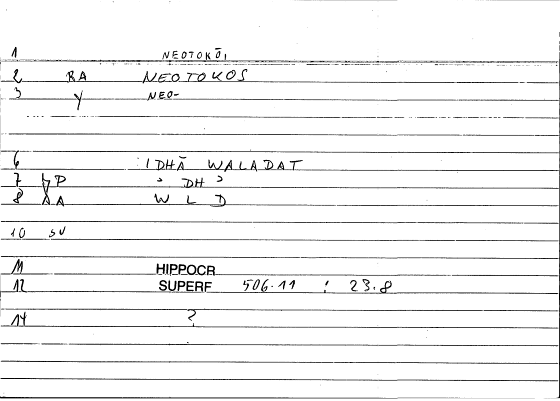 1 NEOTOKŌI
2 RA NEOTOKOS
3 Y NEO-
6 IDHĀ WALADAT
7 P ʾ DH ʾ
8 A W L D
10 SV
11 HIPPOCR
12 SUPERF 506.11 : 23.8
14 ?